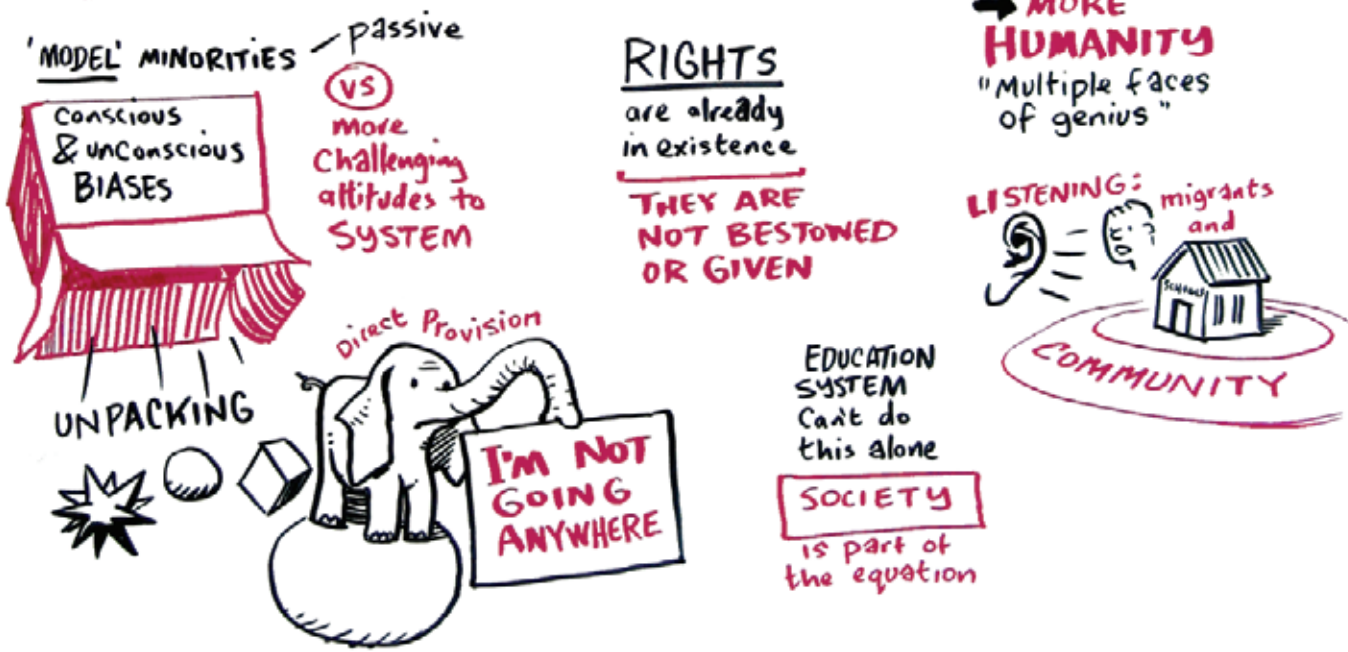 'MODEL' MINORITIES
passive
VS
more
Challenging
attitudes to
SYSTEM
conscious
& unconscious
BIASES
UNPACKING
Direct Provision
I'M NOT
GOING
ANYWHERE
RIGHTS
are already
in existence
THEY ARE
NOT BESTOWED
OR GIVEN
EDUCATION
SYSTEM
Can't do
this alone
SOCIETY
is part of
the equation
MORE
HUMANITY
"Multiple faces
of genius"
LISTENING:
migrants
and
SCHOOLS
COMMUNITY